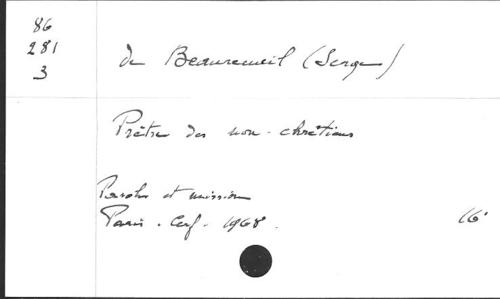 86
281
3
de Beaurecueil (Serge)
Prêtre des non-chrétiens
Parole et mission
Paris. Cerf. 1968.
16°